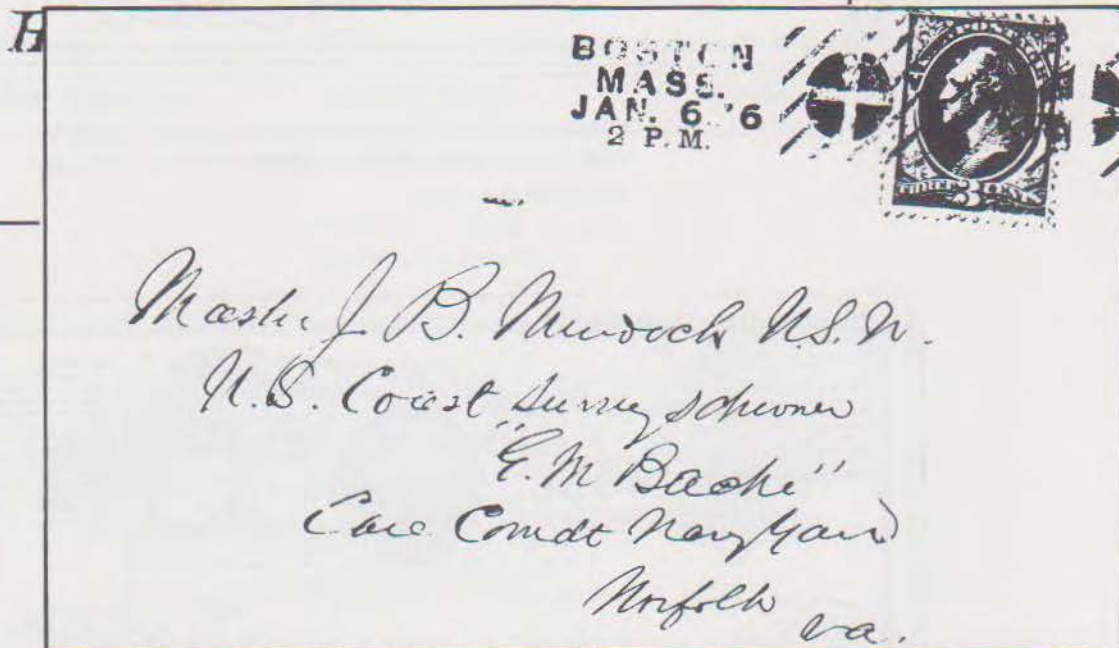 H
BOSTON
MASS.
JAN. 6 '76
2 P.M.
POSTAGE
THREE 3 CENTS
Master J. B. Murdock U.S.N.
U.S. Coast Survey Schooner
"G. M Bache"
Care Comdt Navy Yard
Norfolk
Va.